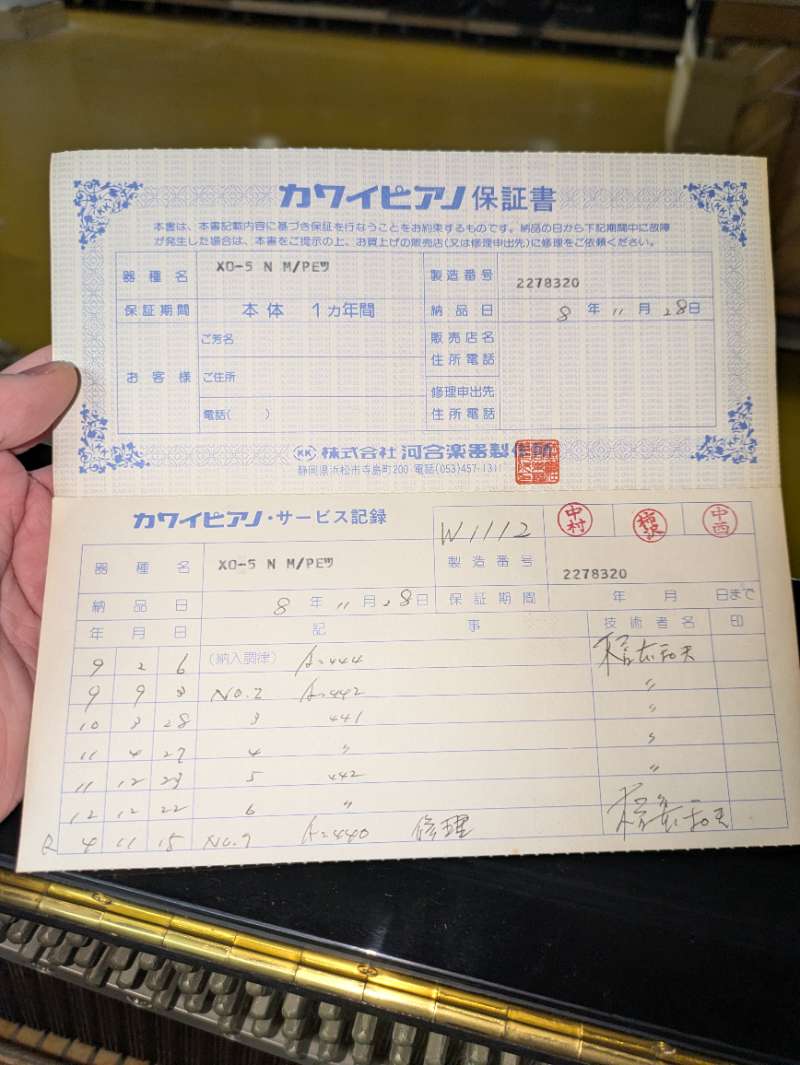 カワイピアノ 保証書
本書は、本書記載内容に基づき保証を行なうことをお約束するものです。納品の日から下記期間中に故障
が発生した場合は、本書をご提示の上、お買上げの販売店(又は修理申出先)に修理をご依頼ください。
器種名 XO-5 N M/PEツ 製造番号 2278320
保証期間 本体 1カ年間 納品日 8年11月28日
お客様 ご芳名 販売店名 住所電話
ご住所 修理申出先 住所電話
電話( )
KK 株式会社 河合楽器製作所
静岡県浜松市寺島町200 電話(053)457-1311
カワイピアノ・サービス記録 W1112 中村 中西
器種名 XO-5 N M/PEツ 製造番号 2278320
納品日 8年11月28日 保証期間 年 月 日まで
年月日 記事 技術者名 印
9 2 6 (納入調律) A=444
9 9 3 No.2 A=442 〃
10 3 28 3 441 〃
11 4 27 4 〃 〃
11 12 23 5 442 〃
12 12 22 6 〃
R 4 11 15 No.7 A=440 修理